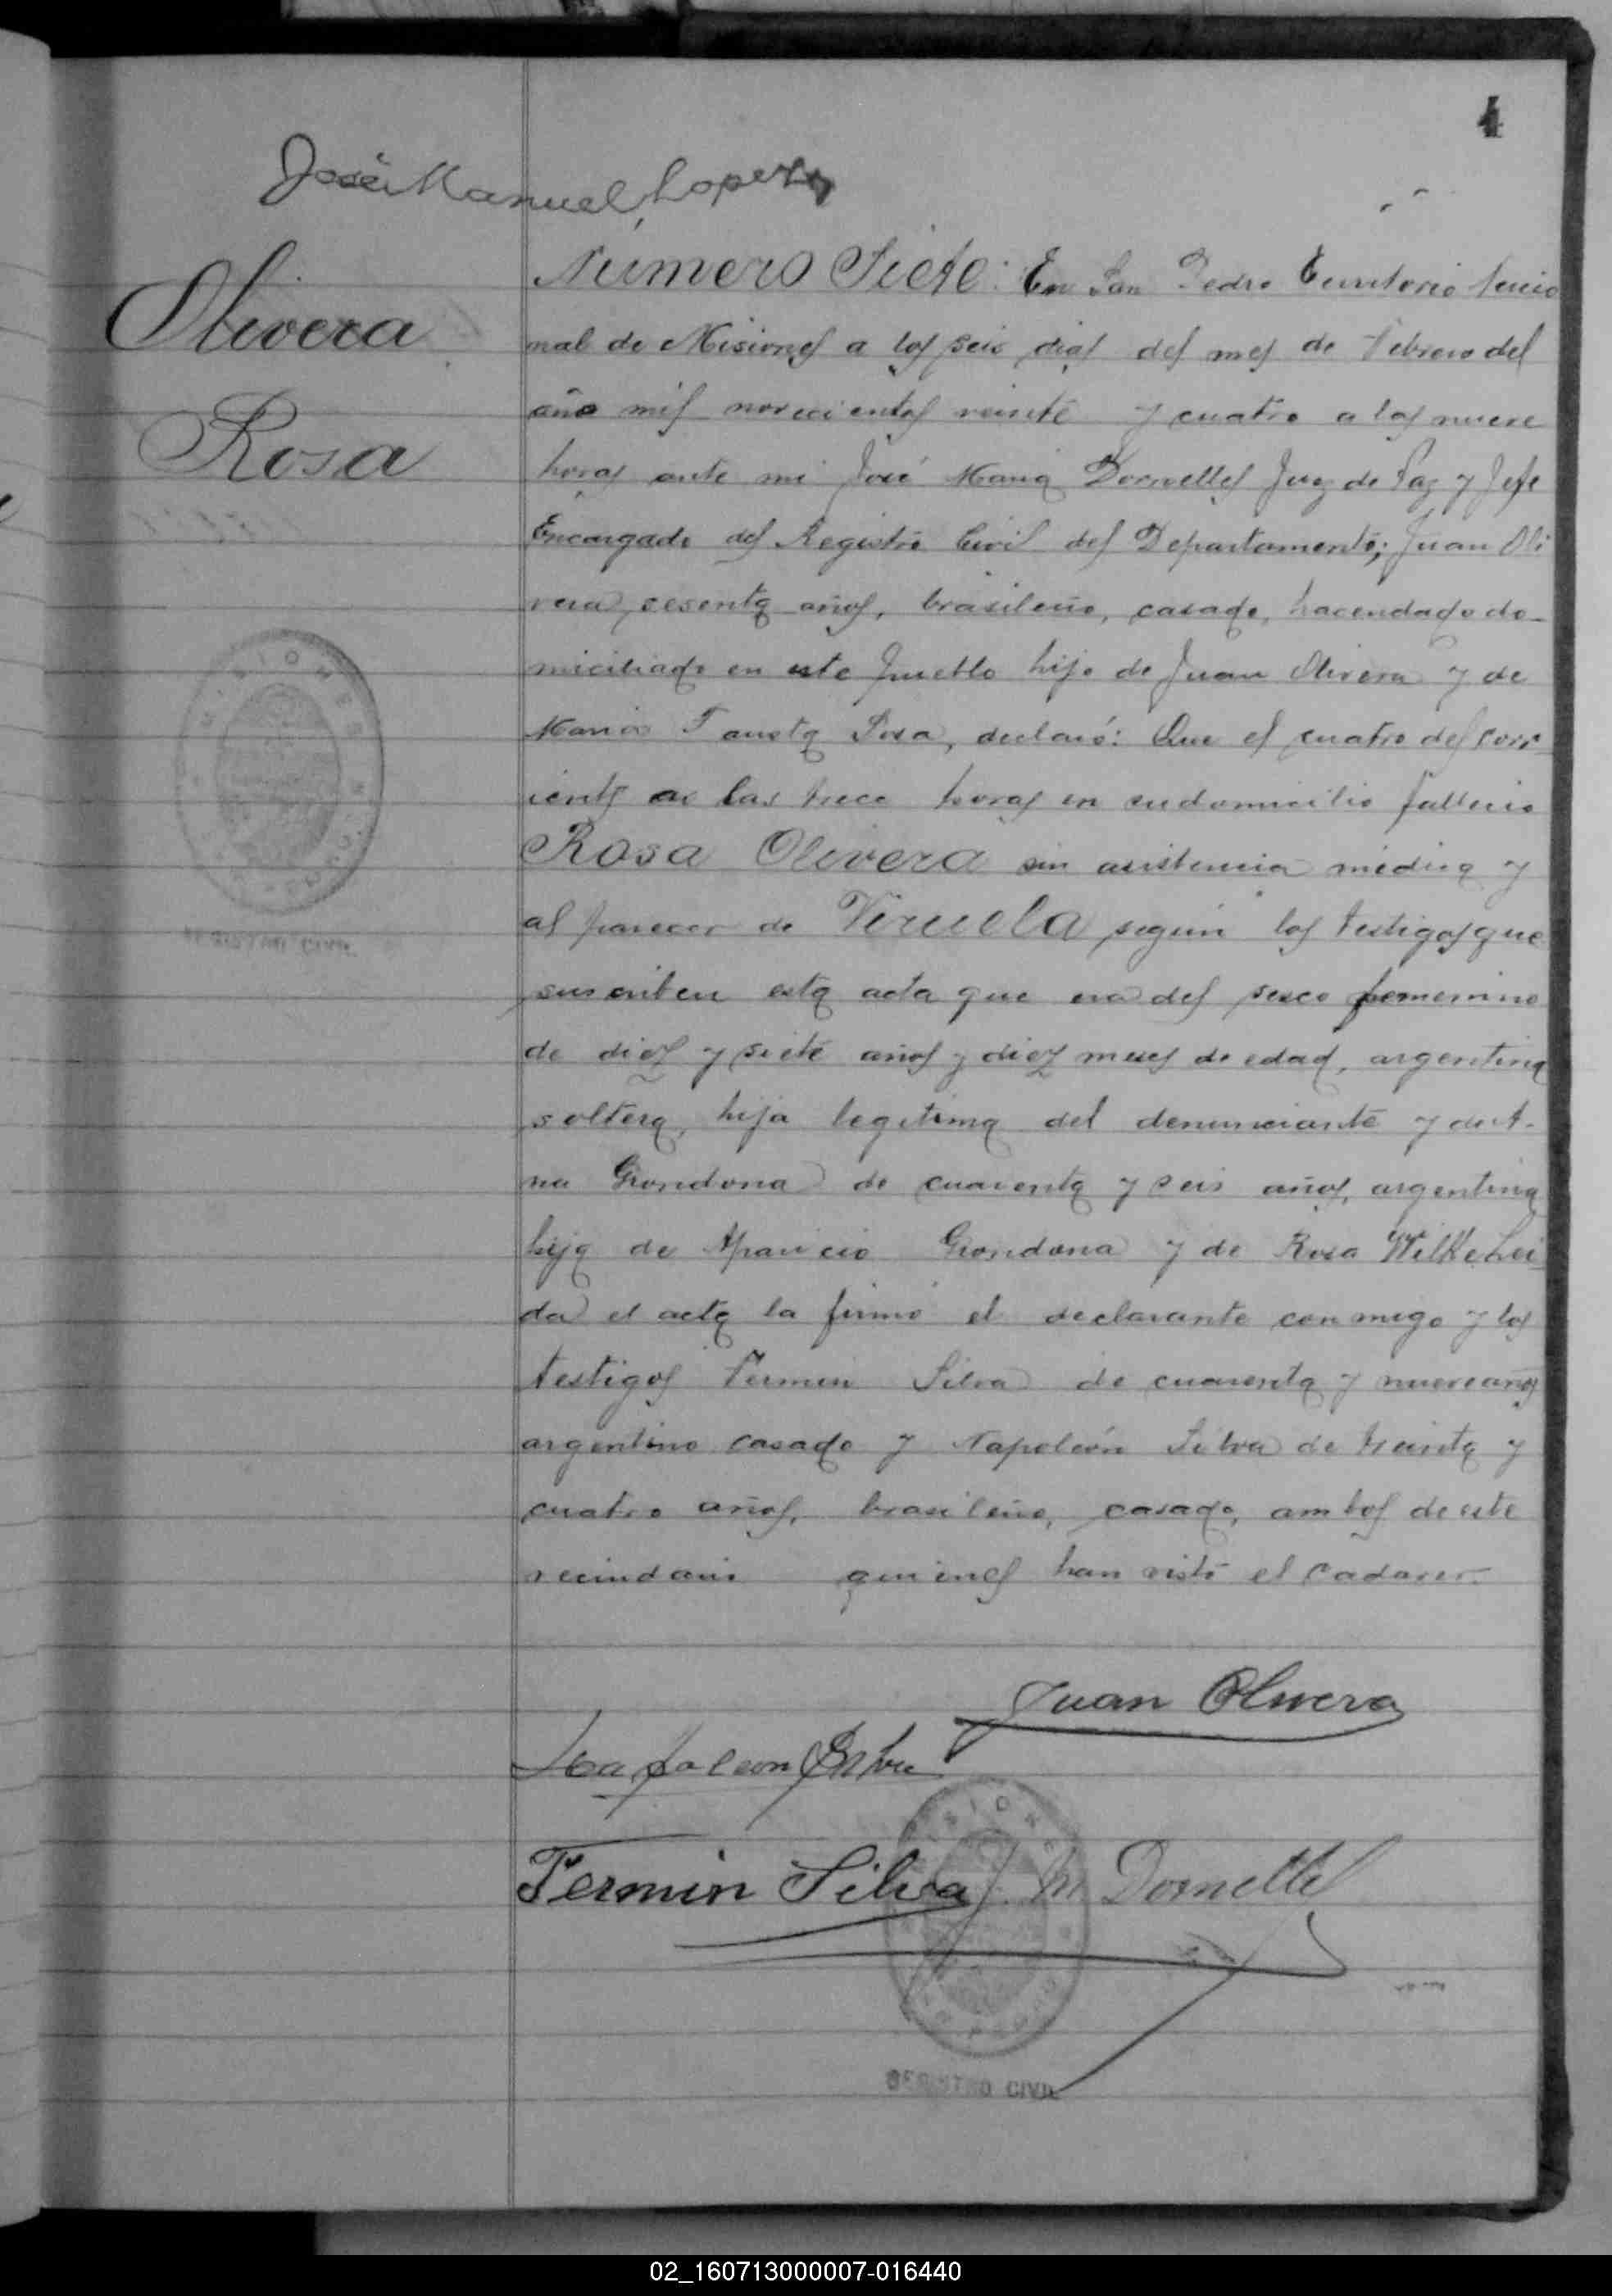 4
José Manuel Lopez
Olivera
Rosa
Número Siete: En San Pedro Territorio Nacio
nal de Misiones a los seis dias del mes de Febrero del
año mil novecientos veinte y cuatro a las nueve
horas ante mi José Maria Dornelles Juez de Paz y Jefe
Encargado del Registro Civil del Departamento; Juan Oli
vera, sesenta años, brasileño, casado, hacendado do-
miciliado en este pueblo hijo de Juan Olivera y de
Maria Fausta Rosa, declaró: Que el cuatro del corr
iente a las trece horas en su domicilio fallecio
Rosa Olivera sin asistencia médica y
al parecer de Viruela según los testigos que
suscriben esta acta que era del sexo femenino
de diez y siete años y diez meses de edad, argentina
soltera, hija legitima del denunciante y de A-
na Grondona de cuarenta y seis años, argentina
hija de Aparicio Grondona y de Rosa Wilke Lei
da el acta la firmó el declarante conmigo y los
testigos Fermin Silva de cuarenta y nueve años
argentino casado y Napoleón Silva de treinta y
cuatro años, brasileño, casado, ambos de este
vecindario quienes han visto el cadaver.
Juan Olivera
Napoleon Silva
Fermin Silva J. M. Dornelles
MISIONES
REGISTRO CIVIL
MISIONES
REGISTRO CIVIL
02_160713000007-016440